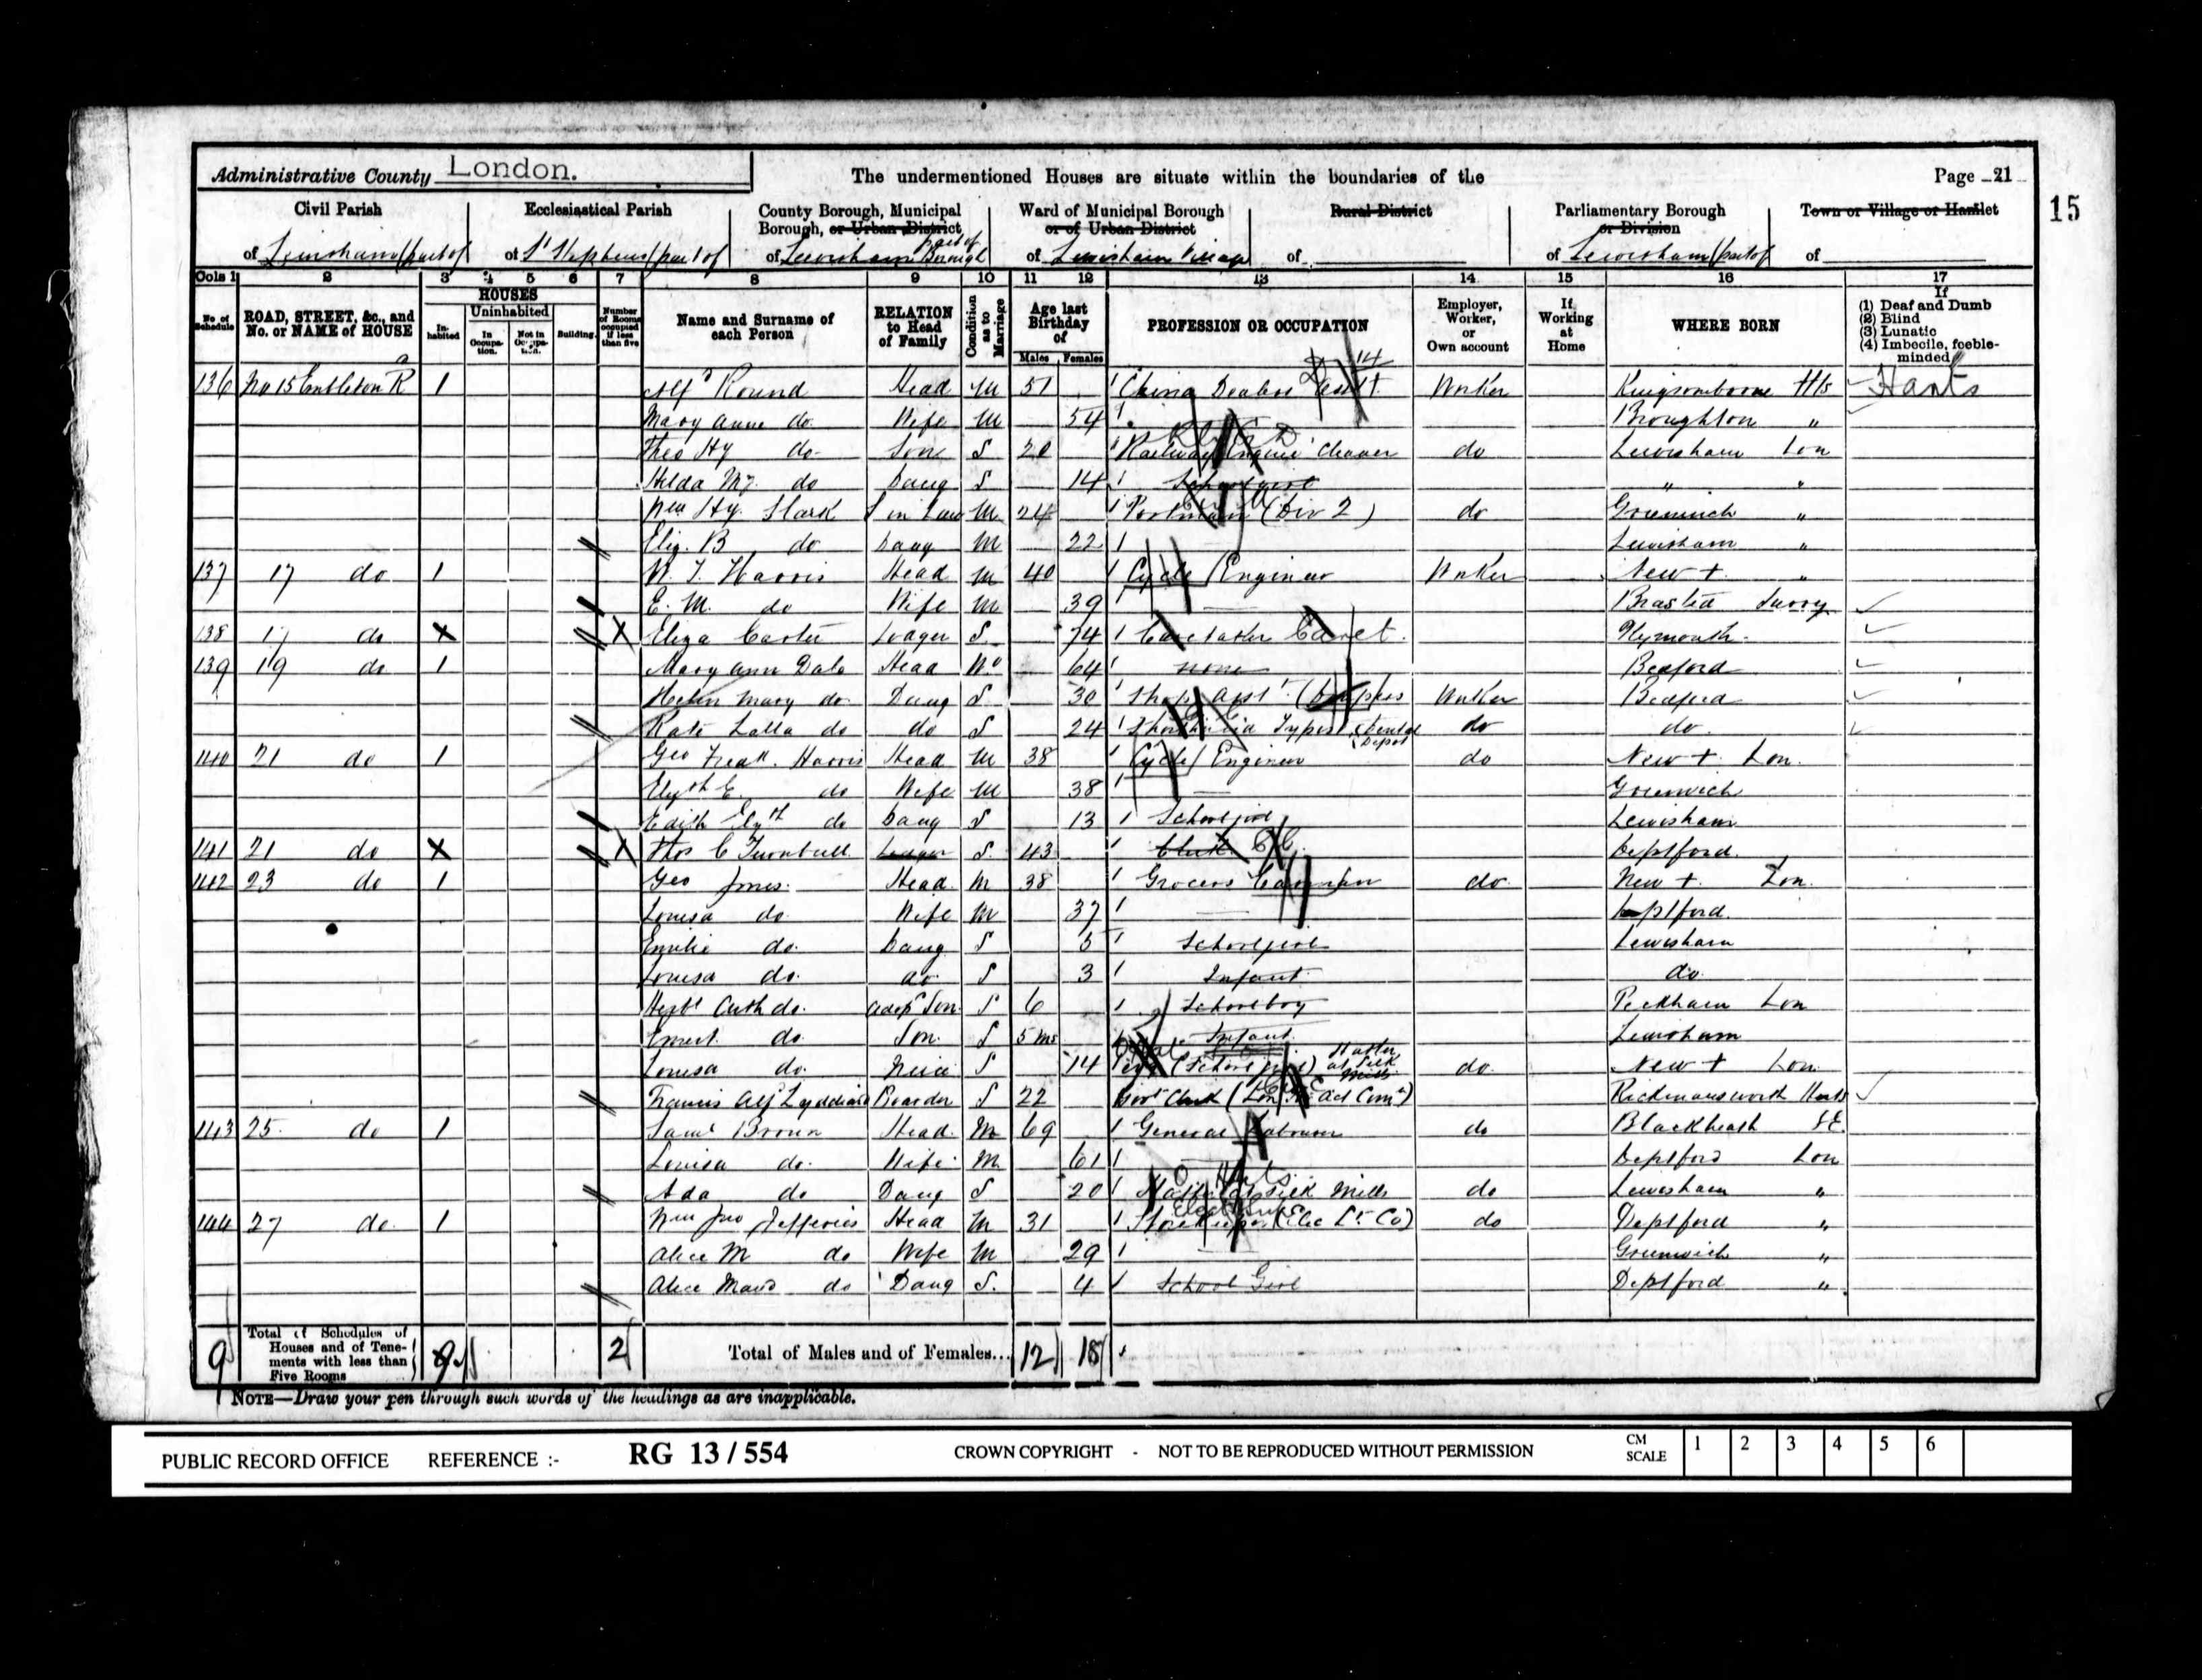 Administrative County London.
The undermentioned Houses are situate within the boundaries of the
Page 21
15
Civil Parish
Ecclesiastical Parish
County Borough, Municipal Borough, or Urban District
Ward of Municipal Borough or of Urban District
Rural District
Parliamentary Borough or Division
Town or Village or Hamlet
of Lewisham (part of
of St Stephens (part of
of Lewisham Borough part of
of Lewisham Village
of
of Lewisham (part of
of
Cols 1 2 3 4 5 6 7 8 9 10 11 12 13 14 15 16 17
No. of Schedule
ROAD, STREET, &c., and No. or NAME of HOUSE
HOUSES
Inhabited
Uninhabited
In Occupation.
Not in Occupation.
Building.
Number of Rooms occupied if less than five
Name and Surname of each Person
RELATION to Head of Family
Condition as to Marriage
Age last Birthday of
Males Females
PROFESSION OR OCCUPATION
Employer, Worker, or Own account
If Working at Home
WHERE BORN
If
(1) Deaf and Dumb
(2) Blind
(3) Lunatic
(4) Imbecile, feeble-minded
136 No 15 Embleton Rd 1 Alfd Round Head M 51 China Dealers Asst Worker Kingsomborne Hts Hants
Mary Anne do. Wife M 54 Broughton "
Theo Hy do. Son S 20 Railway Engine Cleaner do Lewisham Lon
Hilda My. do Daug S 14 Schoolgirl " "
Wm Hy. Slark S in Law M 24 Postman (Div 2) do Greenwich "
Eliz. B do Daug M 22 Lewisham "
137 17 do 1 W. J. Harris Head M 40 Cycle Engineer Worker New + "
E. M. do Wife M 39 Brasted Surry
138 17 do X X Eliza Carter Lodger S 74 Caretaker Plymouth
139 19 do 1 Mary Ann Dale Head Wo 64 none Bedford
Helen Mary do. Daug S 30 Shop Asst. Worker Bedford
Kate Lalla do do S 24 Typist (Dental Depot do do.
140 21 do 1 Geo Fredk. Harris Head M 38 Cycle Engineer do New + Lon.
Elizth E. do Wife M 38 Greenwich
Edith Elyth do Daug S 13 Schoolgirl Lewisham
141 21 do X X Thos C Turnbull Lodger S. 43 Clerk Deptford.
142 23 do 1 Geo Jones. Head M 38 Grocers Carman do. New + Lon.
Louisa do. Wife M 37 Deptford.
Emilie do. Daug S 5 Schoolgirl Lewisham
Louisa do. do. S 3 Infant do
Herbt Cuth do. Adopd Son. S 6 Schoolboy Peckham Lon
Ernest. do. Son. S 5 ms Infant Lewisham
Louisa do. Niece S 14 at Silk Mills do. New + Lon
Francis Alf Lyddiard Boarder S 22 Govt Clerk Rickmansworth Herts
143 25. do 1 Saml Brown Head. M 69 General Labourer do Blackheath SE.
Louisa do. Wife. M 61 Deptford Lon
Ada do Daug S 20 Silk Mills do Lewisham "
144 27 do. 1 Wm Jno Jefferies Head M 31 Storekeeper (Elec Lt. Co) do Deptford "
Alice M do Wife M 29 Greenwich "
Alice Maud do Daug S. 4 School Girl Deptford "
9 Total of Schedules of Houses and of Tenements with less than Five Rooms 9 2 Total of Males and of Females... 12 18
NOTE—Draw your pen through such words of the headings as are inapplicable.
PUBLIC RECORD OFFICE REFERENCE :- RG 13/554 CROWN COPYRIGHT - NOT TO BE REPRODUCED WITHOUT PERMISSION CM SCALE 1 2 3 4 5 6